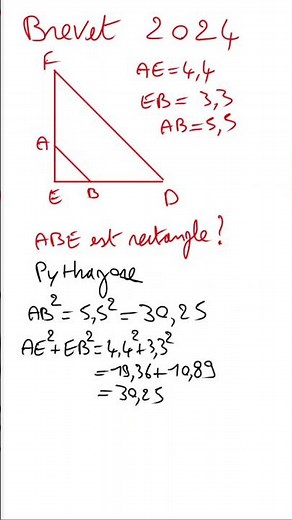 Brevet 2024
F
AE=4,4
EB= 3,3
AB=5,5
A
E B D
ABE est rectangle?
Pythagore
AB²=5,5²=30,25
AE²+EB²=4,4²+3,3²
=19,36+10,89
=30,25